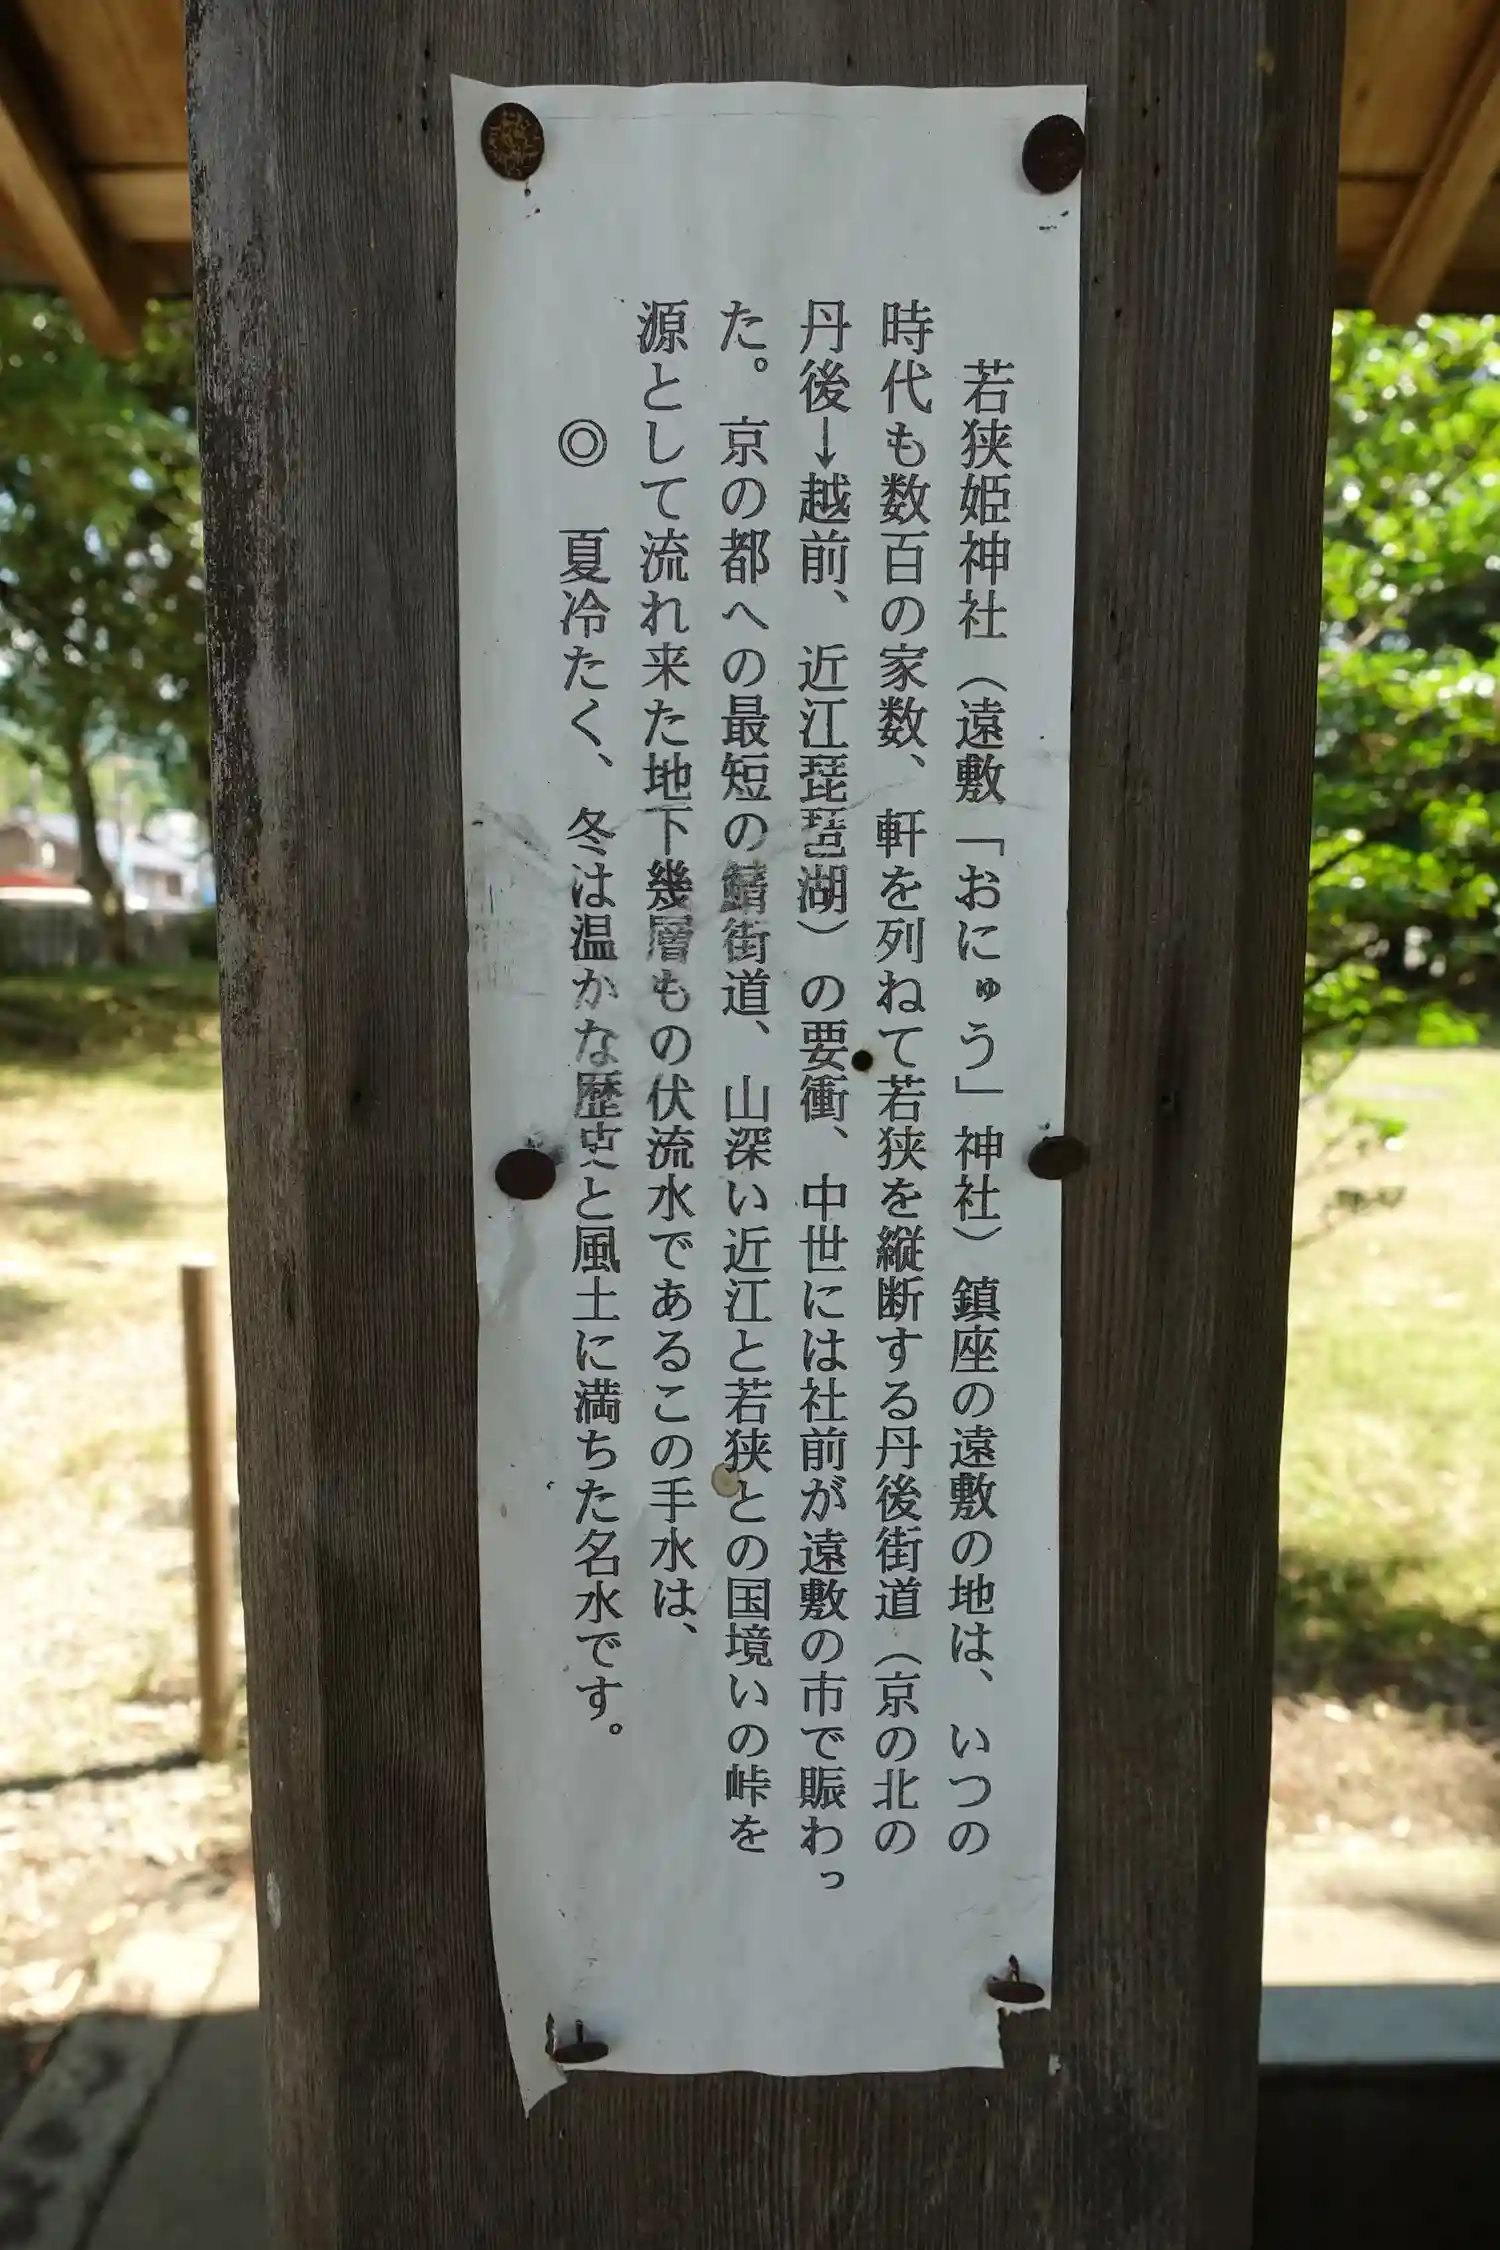 若狭姫神社（遠敷「おにゅう」神社）鎮座の遠敷の地は、いつの
時代も数百の家数、軒を列ねて若狭を縦断する丹後街道（京の北の
丹後→越前、近江琵琶湖）の要衝、中世には社前が遠敷の市で賑わっ
た。京の都への最短の鯖街道、山深い近江と若狭との国境いの峠を
源として流れ来た地下幾層もの伏流水であるこの手水は、
◎　夏冷たく、冬は温かな歴史と風土に満ちた名水です。